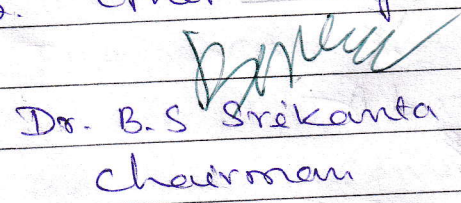 Dr. B.S Srikanta
Chairman